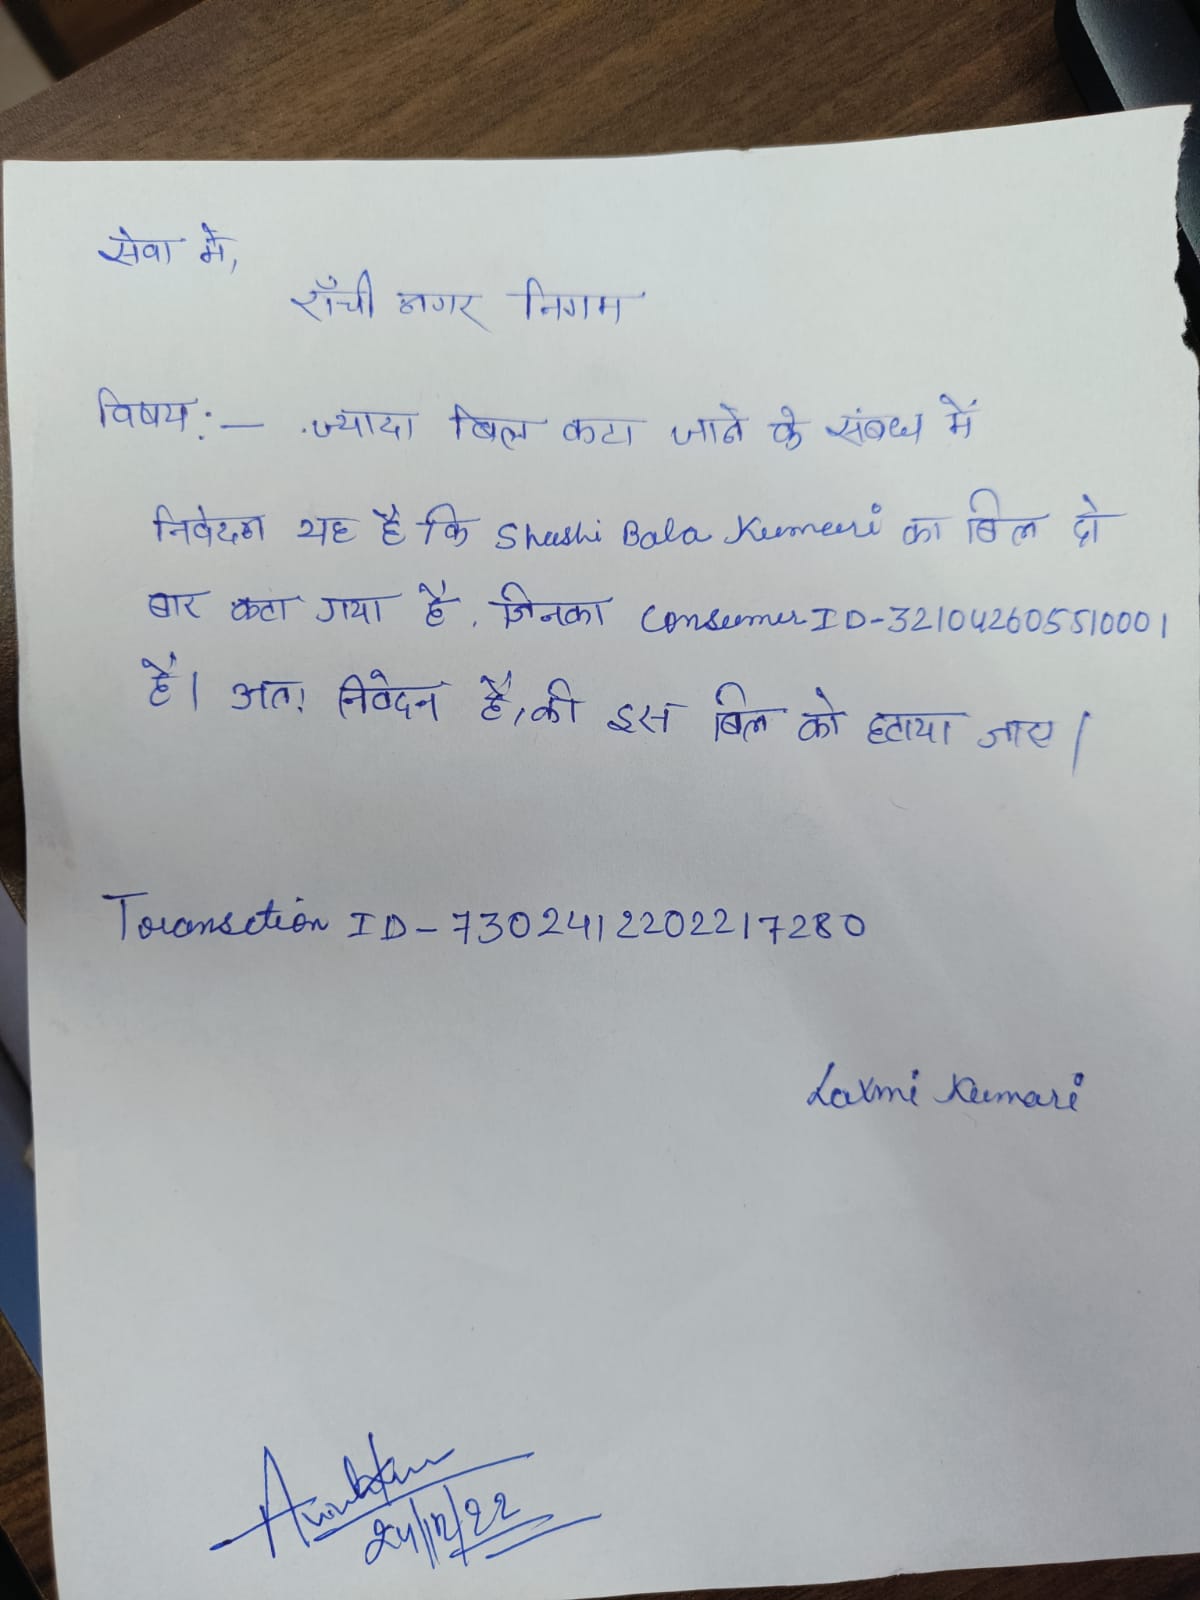 सेवा में,
राँची नगर निगम
विषय:- ज्यादा बिल कटा जाने के संबध में
निवेदन यह है कि Shashi Bala Kumari का बिल दो
बार कटा गया है, जिनका Consumer ID-321042605510001
है। अतः निवेदन है, की इस बिल को हटाया जाए।
Transction ID-7302412202217280
Laxmi Kumari
24/12/22